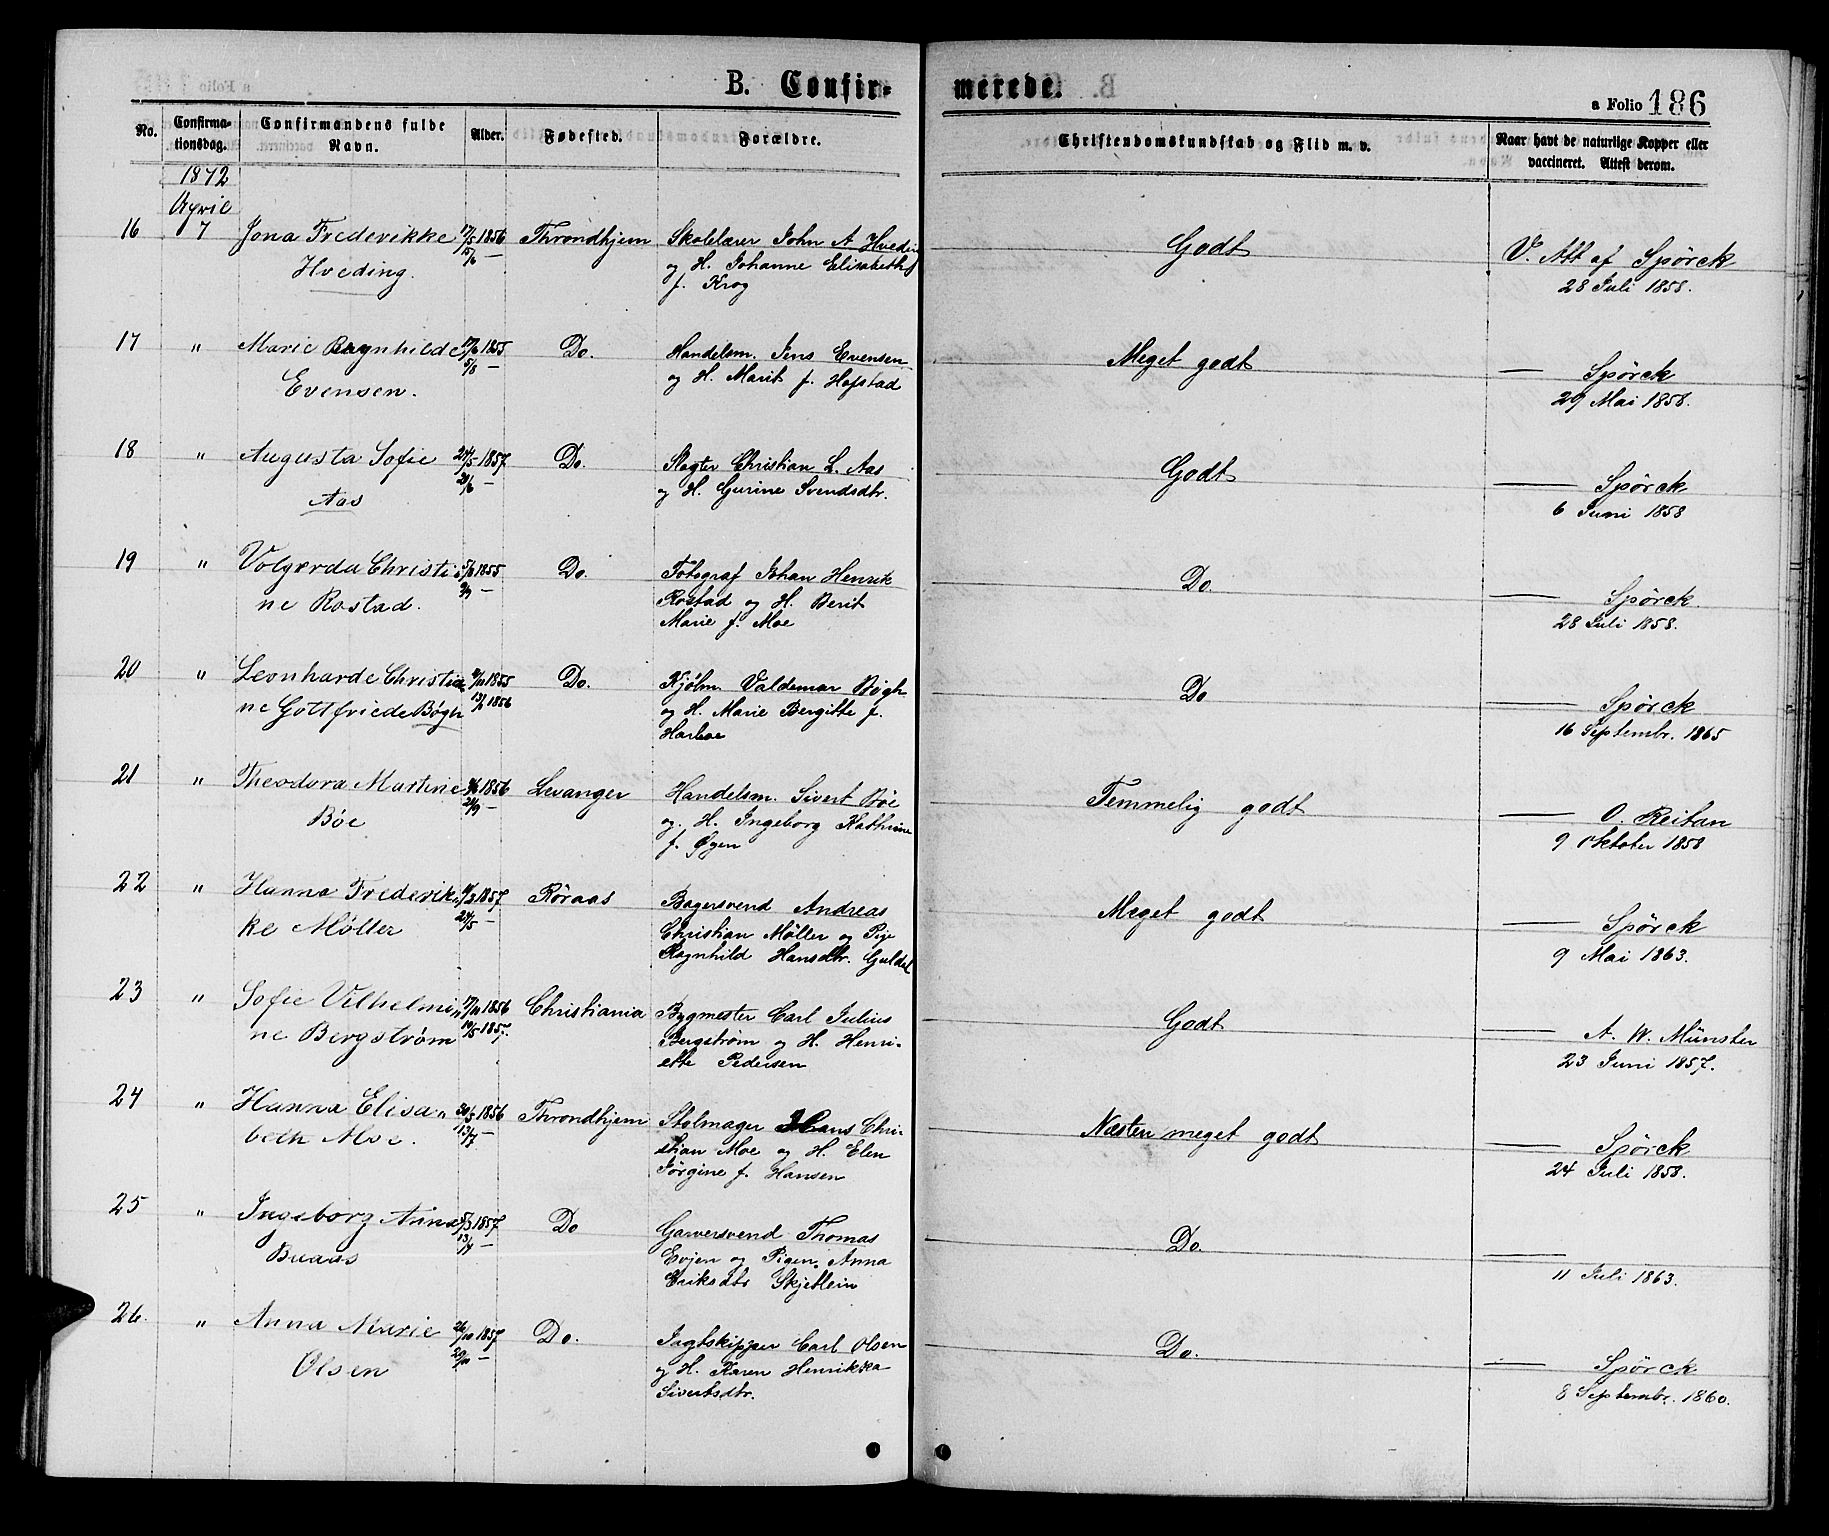 B. Confirmerede.
a Folio 186
No.
Confirmationsdag.
Confirmandens fulde Navn.
Alder.
Fødested.
Forældre.
Christendomskundskab og Flid m. v.
Naar havt de naturlige Kopper eller vaccineret. Attest derom.
1872
April
16 7 Jona Frederikke 1856 Throndhjem Skolelærer John A Hveding Godt V. Att af Spörck
Hveding. og H. Johanne Elisabeth 28 Juli 1858.
f. Krog
17 " Marie Ragnhilde 1855 Do. Handelsm. Jens Evensen Meget godt — Spörck
Evensen. 5/8 — og H. Marit f. Hofstad 29 Mai 1858.
18 " Augusta Sofie 24/5 1857 Do. Slagter Christian L. Aas Godt — Spörck
Aas — og H. Gurine Svendsdtr. 6 Juni 1858
19 " Volgerda Christi 1855 Do. Fotograf Johan Henrik Do. — Spörck
ne Rostad. — Rostad og H. Berit 28 Juli 1858.
Marie f. Moe
20 " Leonharde Christia 1855 Do. Kjølm. Valdemar Bøgh Do — Spörck
ne Gottfriede Bøgh 1856 og H. Marie Bergitte f. 16 Septembr. 1865
21 " Theodora Martine 1856 Levanger Handelsm. Sivert Bøe Temmelig godt — O. Reitan
Bøe 21/9 — og H. Ingeborg Kathrine 9 Oktober 1858
f. Øyen
22 " Hanna Frederik 1857 Röraas Bagersvend Andreas Meget godt — Spörck
ke Møller 24/5 — Christian Møller og Pige 9 Mai 1863.
Ragnhild Hansdtr. Guldal
23 " Sofie Vilhelmi 1856 Christiania Bygmester Carl Julius Godt — A. W. Münster
ne Bergstrøm 1857. Bergstrøm og H. Henri- 23 Juni 1857.
ette Pedersen
24 " Hanna Elisa 30/5 1856 Throndhjem Stolmager Hans Chri- Næsten meget godt — Spörck
beth Moe. 13/7 — stian Moe og H. Elen 24 Juli 1858.
Jörgine f. Hansen
25 " Ingeborg Anna 5/3 1857 Do Garversvend Thomas Do. —
Buaas 13/4 — Evjen og Pigen Anna 11 Juli 1863.
Eriksdtr Skjetlein
26. " Anna Marie 1857 Do. Jagtskipper Carl Olsen Do. — Spörck
Olsen — og H. Karen Henrikka 8 Septembr. 1860.
Sivertsdtr.